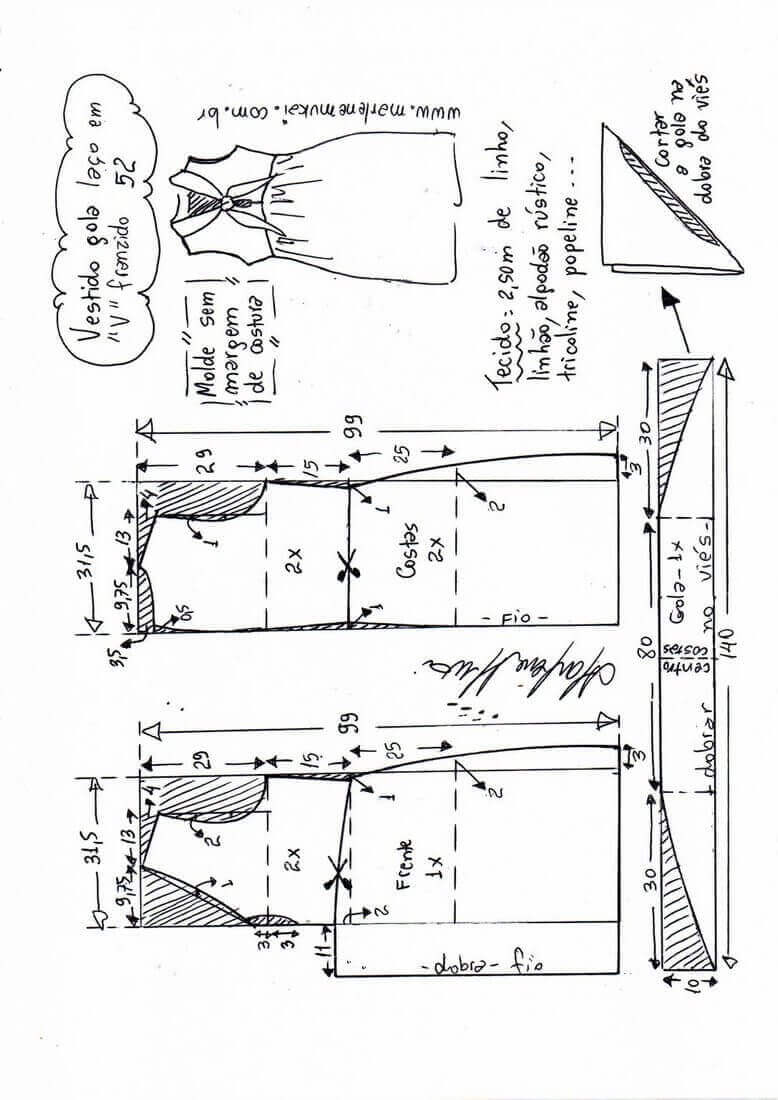 Vestido gola laço em
"V" franzido 52
www.marlenemukai.com.br
"Molde sem
margem
de costura"
Tecido = 2,50m de linho,
linhão, algodão rústico,
tricoline, popeline ---
Cortar
a gola na
dobra do viés
31,5
9,75
13
4
3,5
0,5
1
29
15
25
99
1
1
2
3
2x
Costas
2x
- Fio -
31,5
9,75
13
4
1
2
29
15
25
99
1
2
2
3
3
3
11
2x
Frente
1x
dobra - fio
30
80
30
140
10
Gola - 1x
no viés -
centro
costas
dobrar